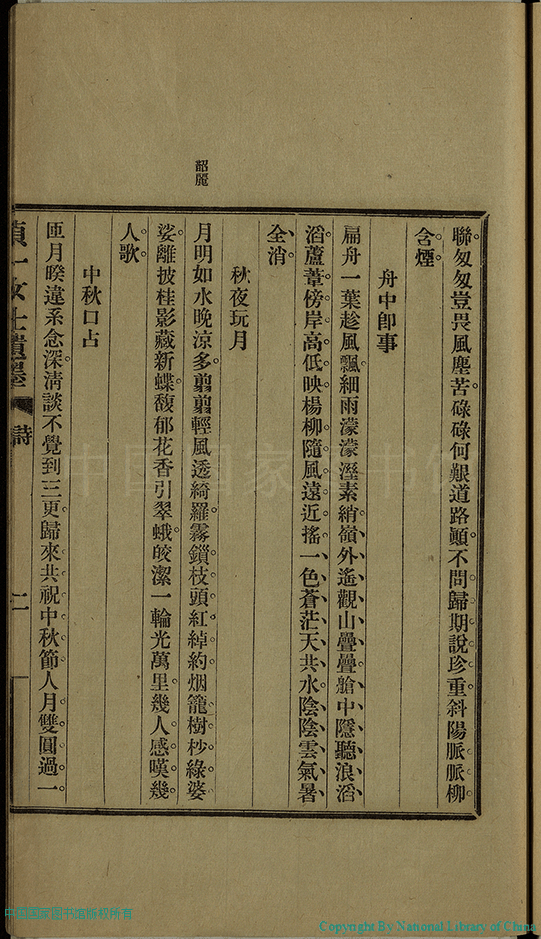 聯匆匆豈畏風塵苦碌碌何艱道路顚不問歸期說珍重斜陽脈脈柳
含煙
舟中卽事
扁舟一葉趁風飄細雨濛濛溼素綃嶺外遙觀山疊疊艙中隱聽浪滔
滔蘆葦傍岸高低映楊柳隨風遠近搖一色蒼茫天共水陰陰雲氣暑
全消
秋夜玩月
韶麗
月明如水晚涼多翦翦輕風透綺羅霧鎖枝頭紅綽約烟籠樹杪綠婆
娑離披桂影藏新蝶馥郁花香引翠蛾皎潔一輪光萬里幾人感嘆幾
人歌
中秋口占
匝月暌違系念深淸談不覺到三更歸來共祝中秋節人月雙圓過一
貞一女士遺墨 詩 二
Copyright By National Library of China